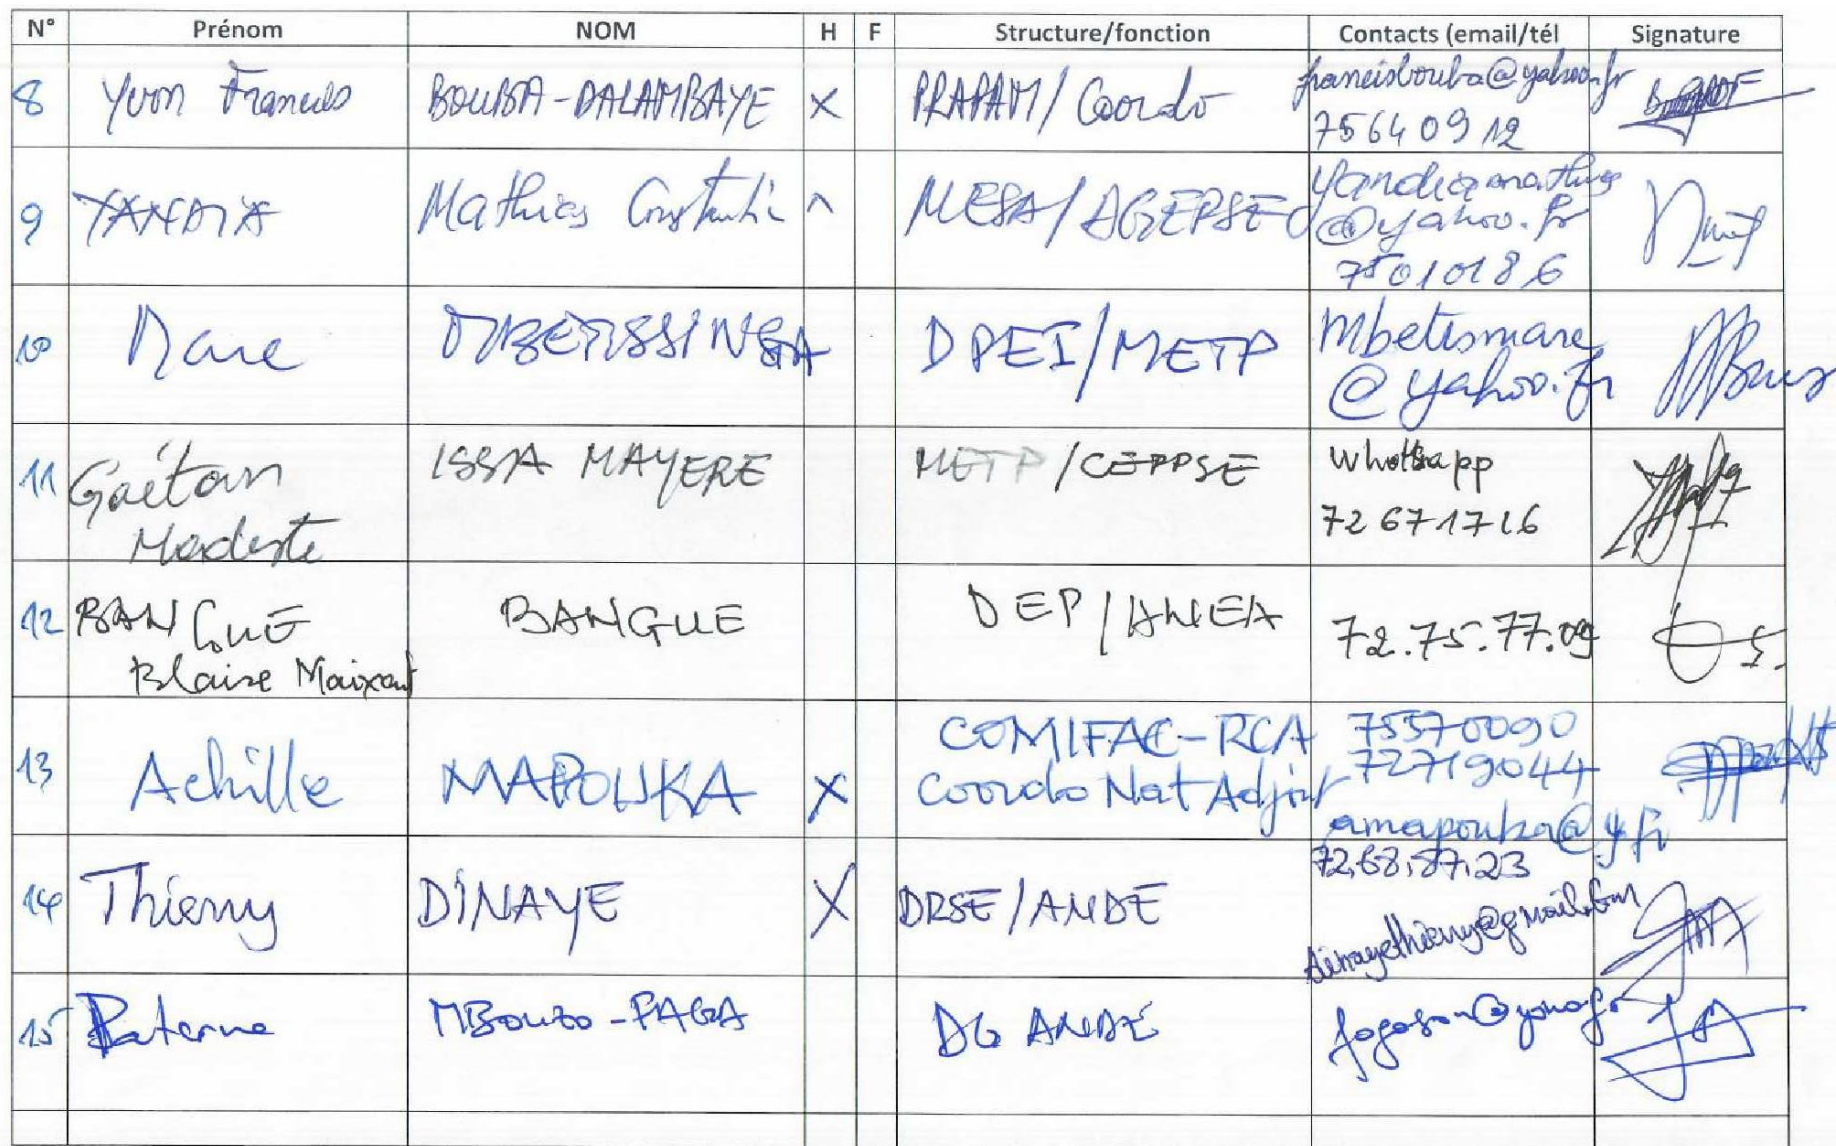 N° Prénom NOM H F Structure/fonction Contacts (email/tél Signature
8 Yvon Francis BOUBA-DALAMBAYE X PRAPAM/Coordo francisbouba@yahoo.fr
75640912
9 YANDIA Mathias Constantin MESA/AGEPSE yandiamathias
@yahoo.fr
75010186
10 Marc MBETISSINGA DPEI/METP Mbetismarc
@yahoo.fr
11 Gaétan ISSA MAYERE METP/CEPPSE Whatsapp
Modeste 72671716
12 BANGUE BANGUE DEP/ANEA 72.75.77.09
Blaise Maixent
13 Achille MAPOUKA X COMIFAC-RCA 75570090
Coordo Nat Adjoint 72719044
amapouka@y.fr
14 Thierry DINAYE X DRSE/ANDE 72,68,87,23
dinayethierry@gmail.com
15 Paterne DG ANDE